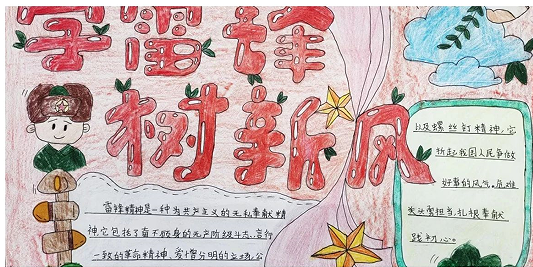 学雷锋
树新风
雷锋精神是一种为共产主义的无私奉献精
神,它包括了奋不顾身的无产阶级斗志,言行
一致的革命精神,爱憎分明的立场,公
以及螺丝钉精神,它
折起我国人民争做
好事的风气。危难
关头需担当,扎根奉献
践初心。